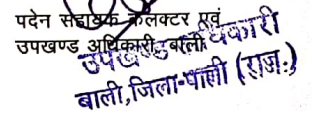 पदेन सहायक कलक्टर एवं
उपखण्ड अधिकारी, बाली
उपखण्ड अधिकारी
बाली, जिला-पाली (राज.)